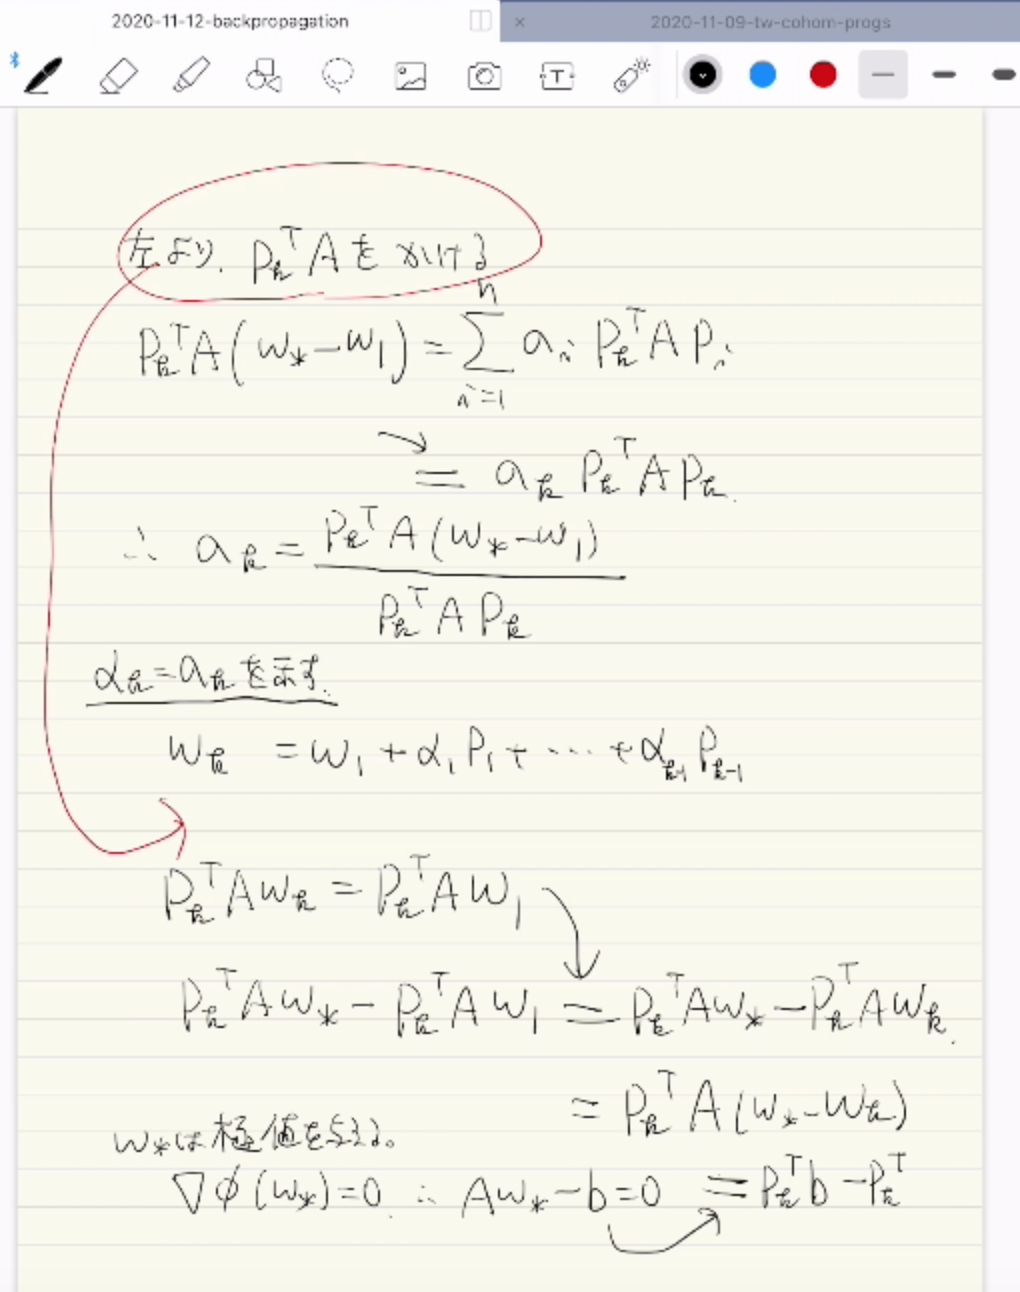 2020-11-12-backpropagation
2020-11-09-tw-cohom-progs
左より、P_k^T A を かける
P_k^T A (w_* - w_1) = \sum_{i=1}^{n} a_i P_k^T A P_i
= a_k P_k^T A P_k.
∴ a_k = \frac{P_k^T A (w_* - w_1)}{P_k^T A P_k}
α_k = a_k を示す.
w_k = w_1 + α_1 P_1 + … + α_{k-1} P_{k-1}
P_k^T A w_k = P_k^T A w_1
P_k^T A w_* - P_k^T A w_1 = P_k^T A w_* - P_k^T A w_k.
= P_k^T A (w_* - w_k)
w_* は極値を与える。
∇φ(w_*) = 0. ∴ A w_* - b = 0 = P_k^T b - P_k^T